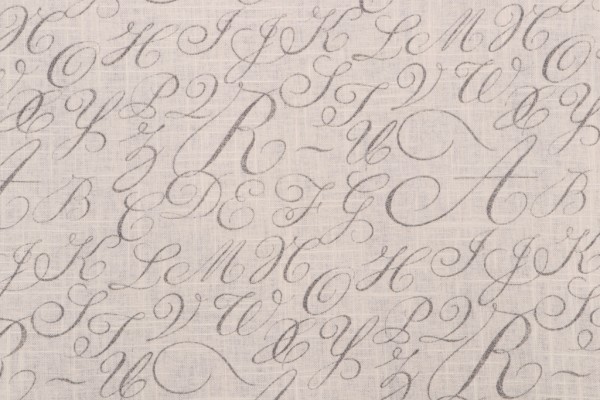 N O H I J K L M N O
X Y P Q R S T V W X Y
Z ~ U A
A B C D E F G B
J K L M N O H I J K
S T V W X Y P Q R S
~ U A Z ~